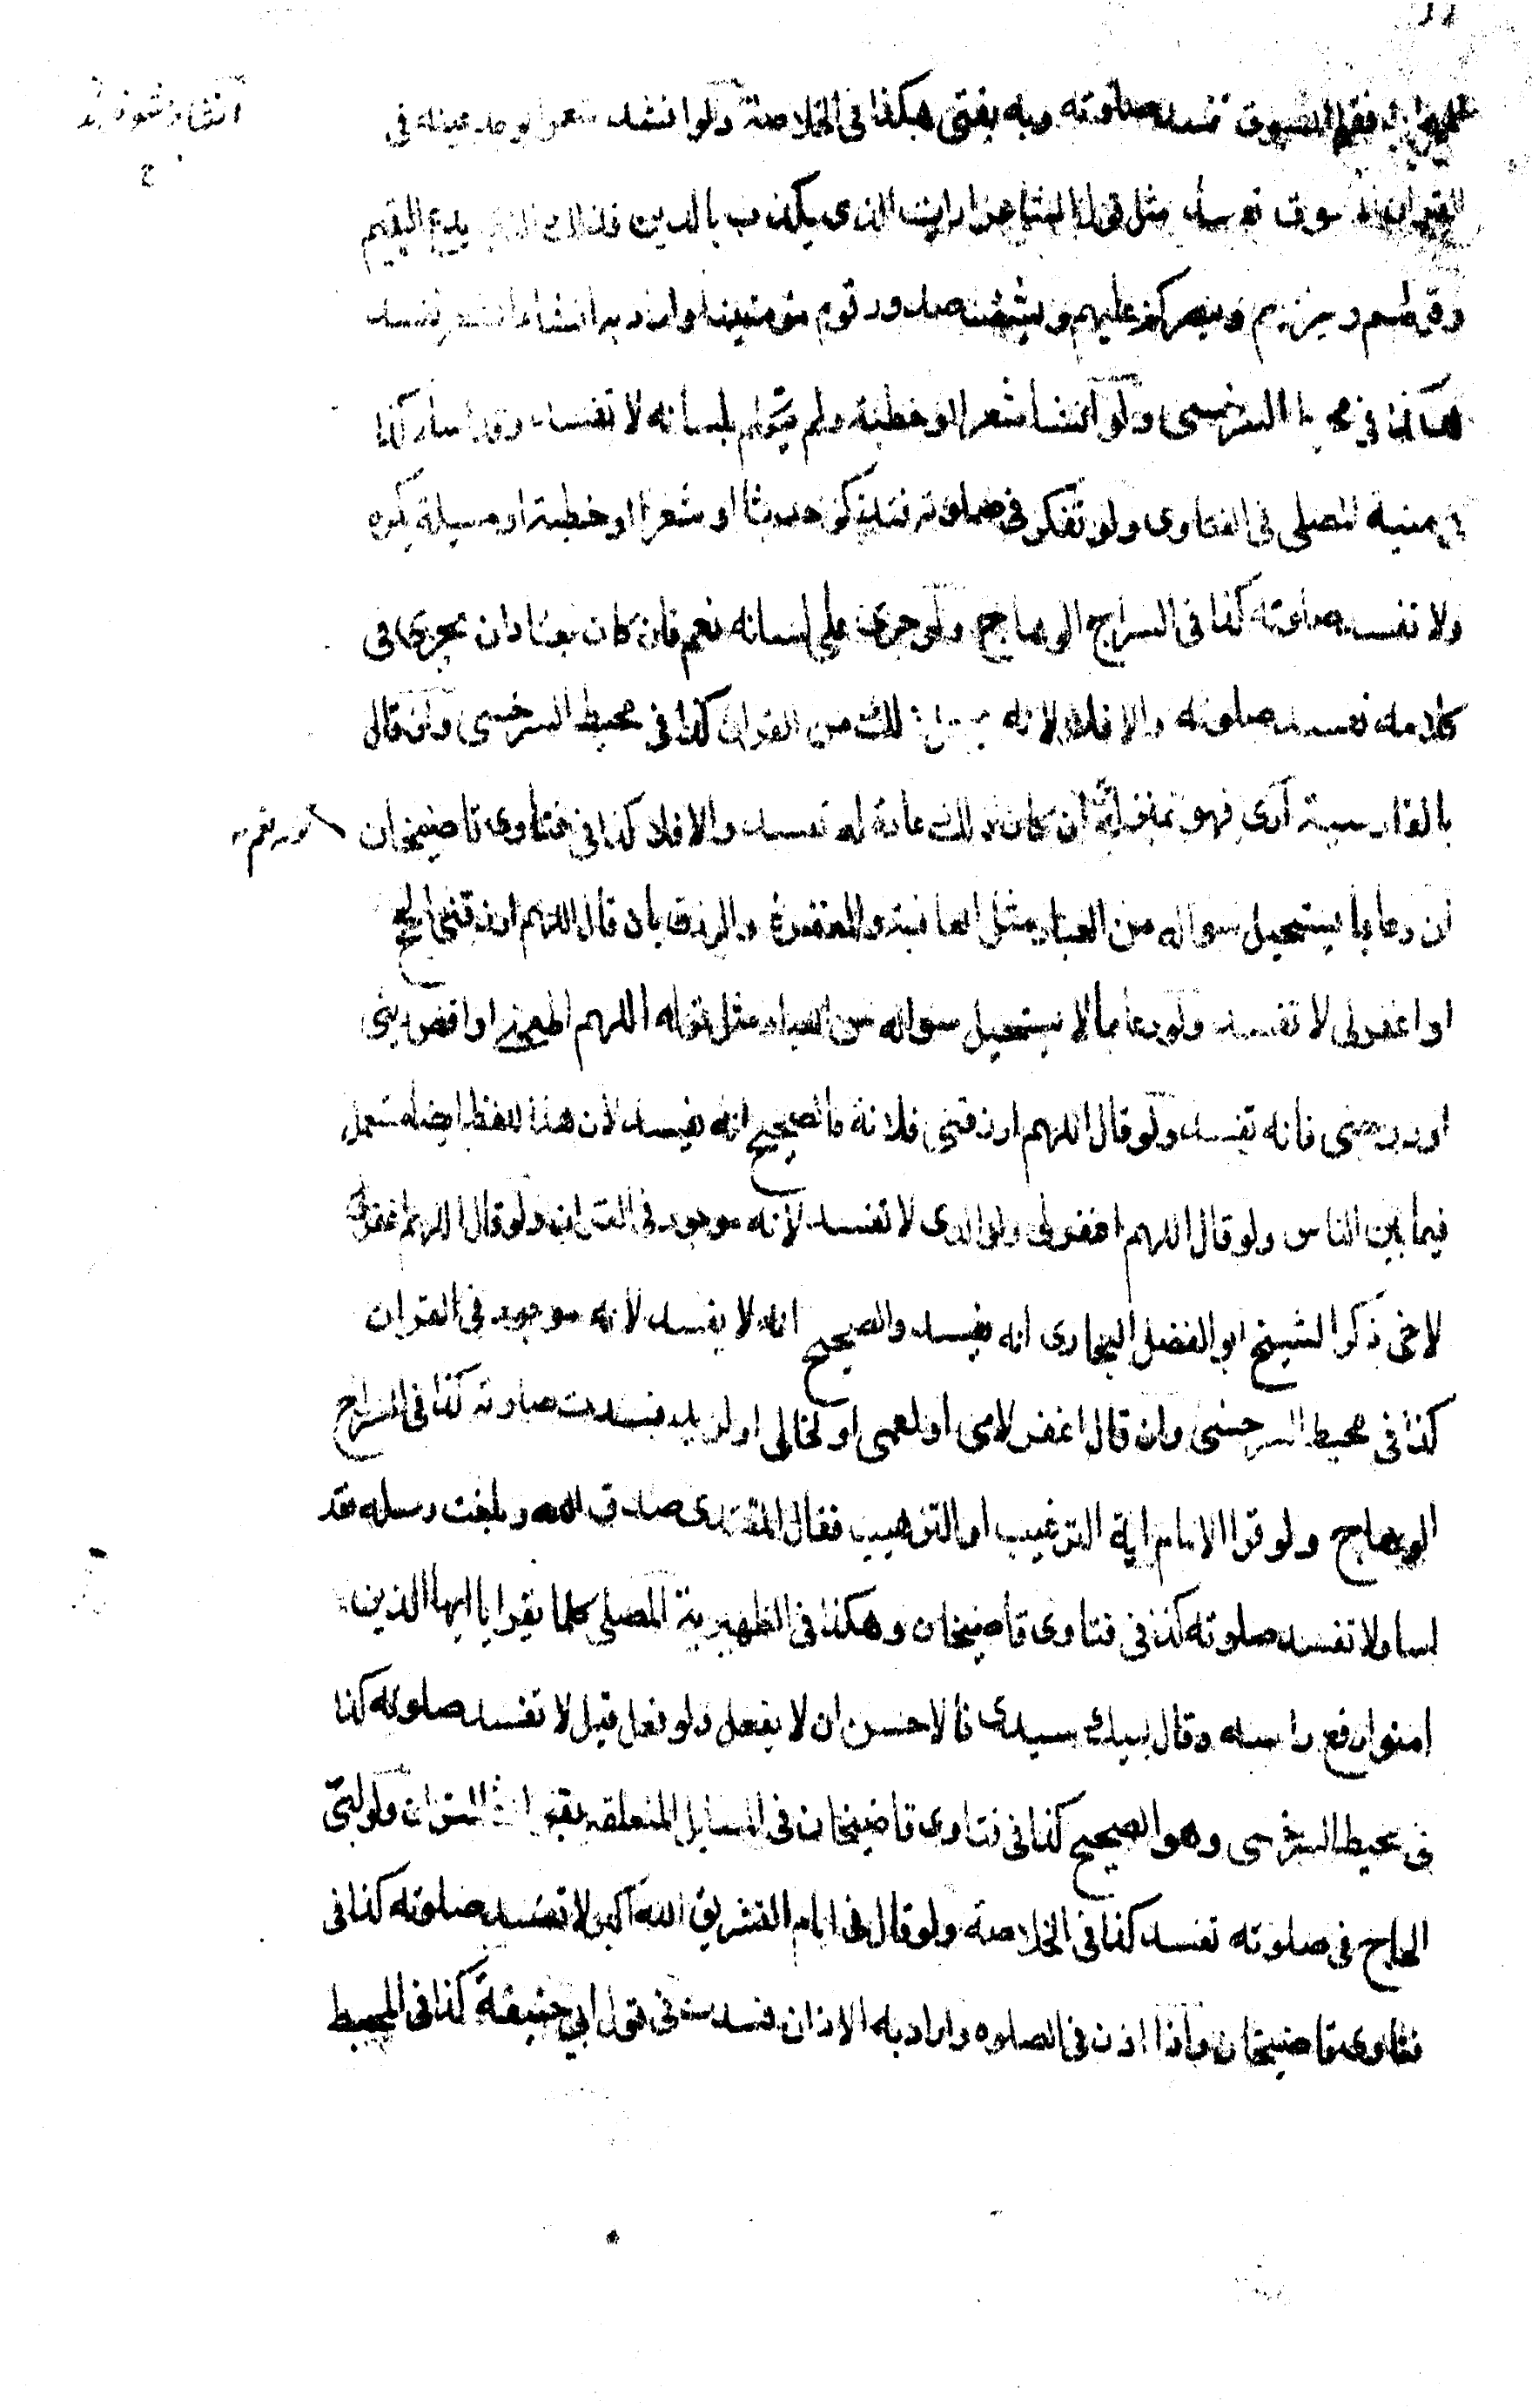 صلوته وبه يفتى هكذا فى الخلاصة ولو انشد شعرا يوجد عينه فى
مثل قول الشاعر ارايت الذى يكذب بالدين فذلك الذى يدع اليتيم
وينصركم عليهم ويشف صدور قوم مومنين وارادبه انشاد الشعر تفسد
هكذا فى محيط السرخسى ولو انشأ شعرا او خطبة ولم يتكلم بلسانه لا تفسد وقد اساء كذا
فى منية المصلى فى الفتاوى ولو تفكر فى صلوته فتذكر حديثا او شعرا او خطبة او مسيلة يكره
ولا تفسد صلوته كذا فى السراج الوهاج ولو جرى على لسانه نعم فان كان يعتاد ان يجرى فى
كلامه تفسد صلوته والا فلا لانه ذلك من القران كذا فى محيط السرخسى وان قال
بالفارسية آرى فهو بمنزلة ان كان ذلك عادة له تفسد والا فلا كذا فى فتاوى قاضيخان
ان دعا بما يستحيل سواله من العباد مثل العافية والمغفرة والرزق بان قال اللهم ارزقنى الحج
او اغفرلى لا تفسد ولو دعا بما لا يستحيل سواله من العباد مثل قوله اللهم اطعمنى او اقض دينى
او زوجنى فانه تفسد ولو قال اللهم ارزقنى فلانة فالصحيح انه يفسد لان هذا اللفظ ايضا مستعمل
فيما بين الناس ولو قال اللهم اغفرلى ولوالدى لا تفسد لانه موجود فى القران ولو قال اللهم اغفر
لاخى ذكر الشيخ ابو الفضل البخارى انه يفسد والصحيح انه لا يفسد لانه موجود فى القران
كذا فى محيط السرخسى وان قال اغفر لامى او لعمى او لخالى او لزيد فسدت صلوته كذا فى السراج
الوهاج ولو قرا الامام اية الترغيب او الترهيب فقال المقتدى صدق الله وبلغت رسله فقد
اسا ولا تفسد صلوته كذا فى فتاوى قاضيخان وهكذا فى الظهيرية المصلى كلما يقرا يا ايها الذين
امنوا رفع راسه وقال لبيك سيدى فالاحسن ان لا يفعل ولو فعل قيل لا تفسد صلوته كذا
فى محيط السرخسى وهو الصحيح كذا فى فتاوى قاضيخان فى المسايل المتعلقه بقراءة القران ولو لبى
الحاج فى صلوته تفسد كذا فى الخلاصة ولو قال فى ايام التشريق الله اكبر لا تفسد صلوته كذا فى
فتاوى قاضيخان واذا اذن فى الصلوه واراد به الاذان فسدت فى قول ابي حنيفة كذا فى المحيط